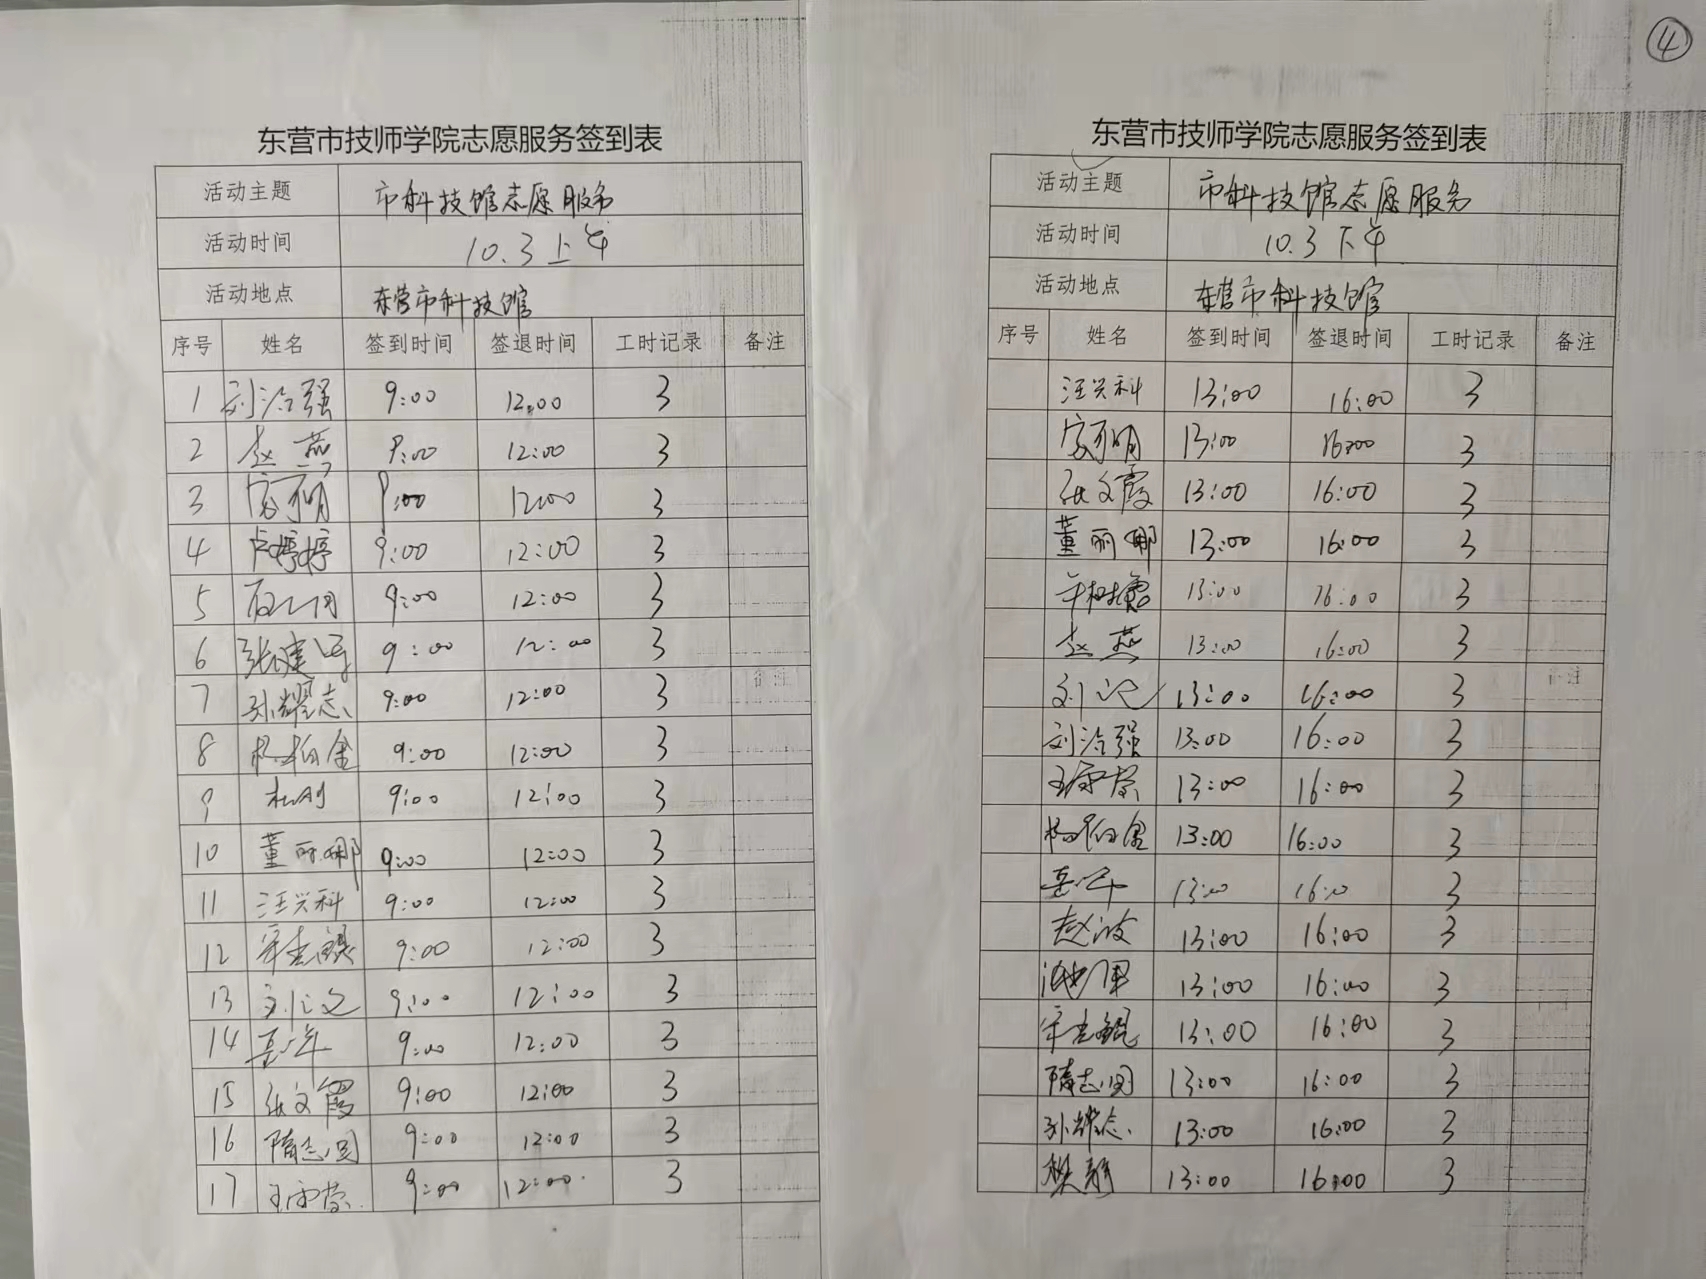 ④
东营市技师学院志愿服务签到表
活动主题 市科技馆志愿服务
活动时间 10.3 上午
活动地点 东营市科技馆
序号 姓名 签到时间 签退时间 工时记录 备注
1 刘冷强 9:00 12:00 3
2 赵燕 9:00 12:00 3
3 9:00 12:00 3
4 卢婷婷 9:00 12:00 3
5 9:00 12:00 3
6 张建 9:00 12:00 3
7 孙耀志 9:00 12:00 3
8 杨柏金 9:00 12:00 3
9 杜刚 9:00 12:00 3
10 董丽娜 9:00 12:00 3
11 汪兴科 9:00 12:00 3
12 9:00 12:00 3
13 9:00 12:00 3
14 9:00 12:00 3
15 张文霞 9:00 12:00 3
16 隋志国 9:00 12:00 3
17 9:00 12:00 3
东营市技师学院志愿服务签到表
活动主题 市科技馆志愿服务
活动时间 10.3 下午
活动地点 东营市科技馆
序号 姓名 签到时间 签退时间 工时记录 备注
汪兴科 13:00 16:00 3
13:00 16:00 3
张文霞 13:00 16:00 3
董丽娜 13:00 16:00 3
13:00 16:00 3
赵燕 13:00 16:00 3
13:00 16:00 3
刘冷强 13:00 16:00 3
13:00 16:00 3
杨柏金 13:00 16:00 3
13:00 16:00 3
赵波 13:00 16:00 3
13:00 16:00 3
13:00 16:00 3
隋志国 13:00 16:00 3
孙耀志 13:00 16:00 3
樊静 13:00 16:00 3